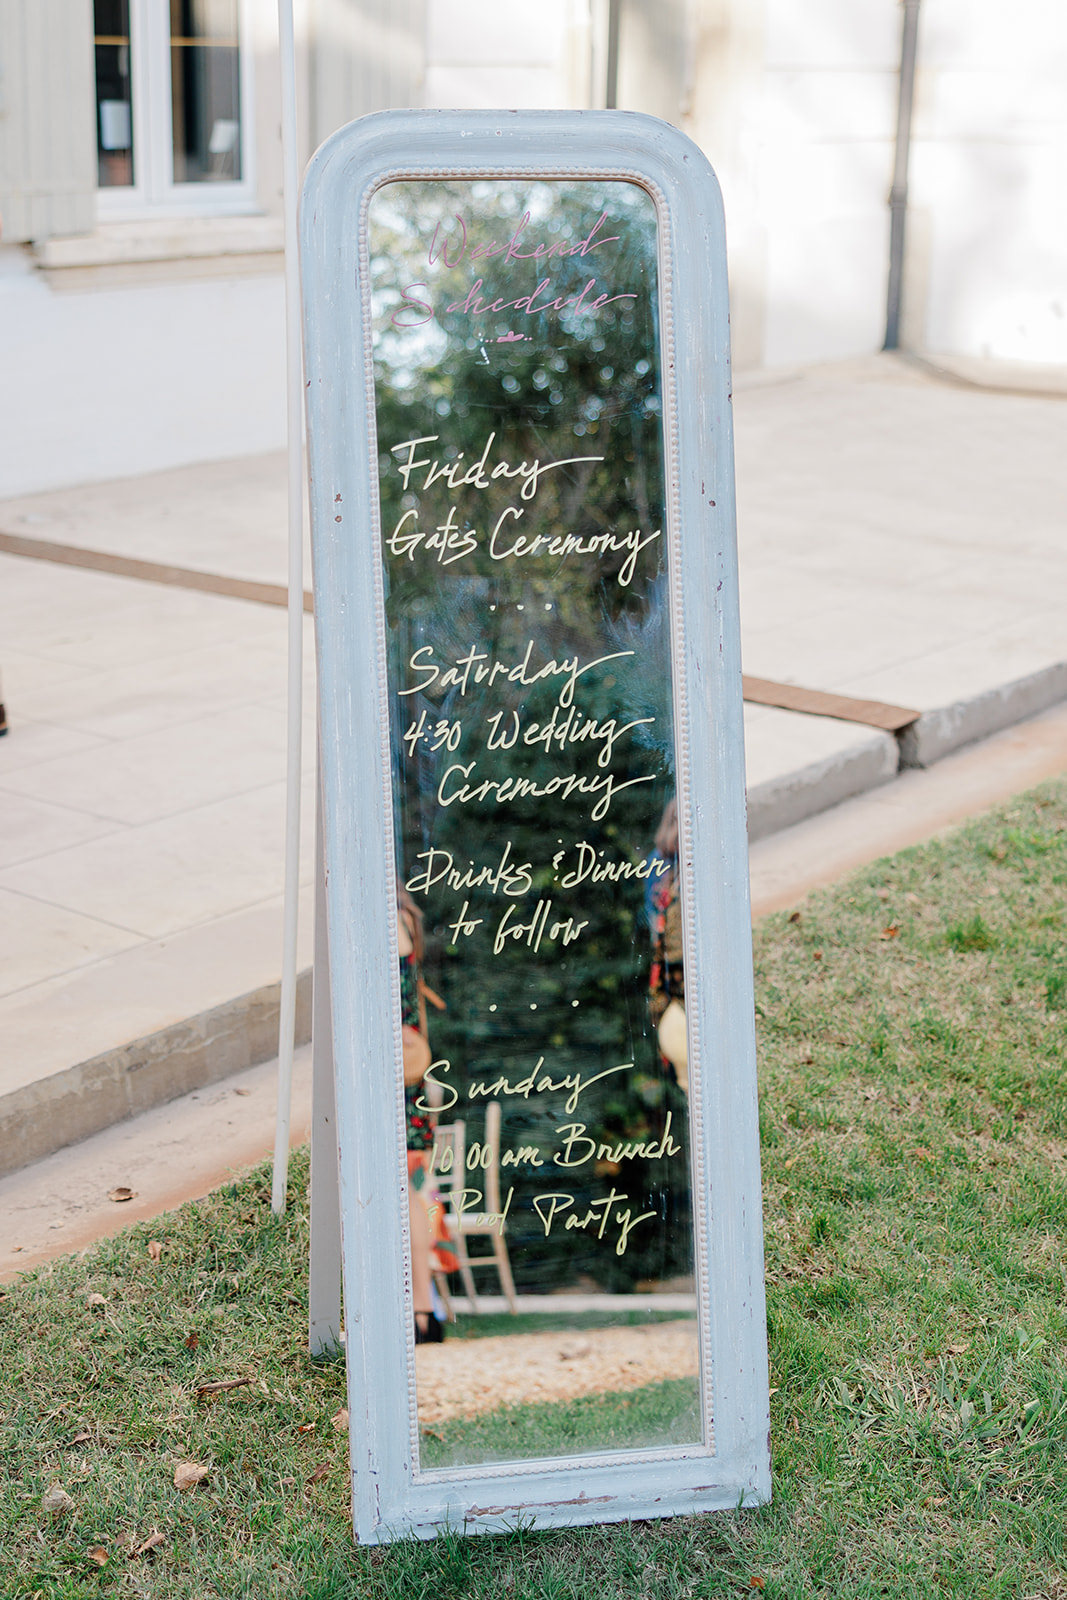 Weekend
Schedule
Friday
Gates Ceremony
...
Saturday
4:30 Wedding
Ceremony
Drinks & Dinner
to follow
...
Sunday
10:00 am Brunch
& Pool Party